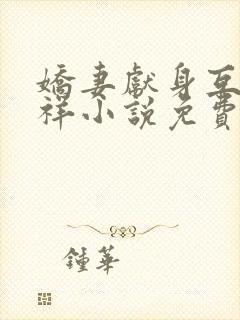 嬌妻獻身互
祥小說免費
鍾華